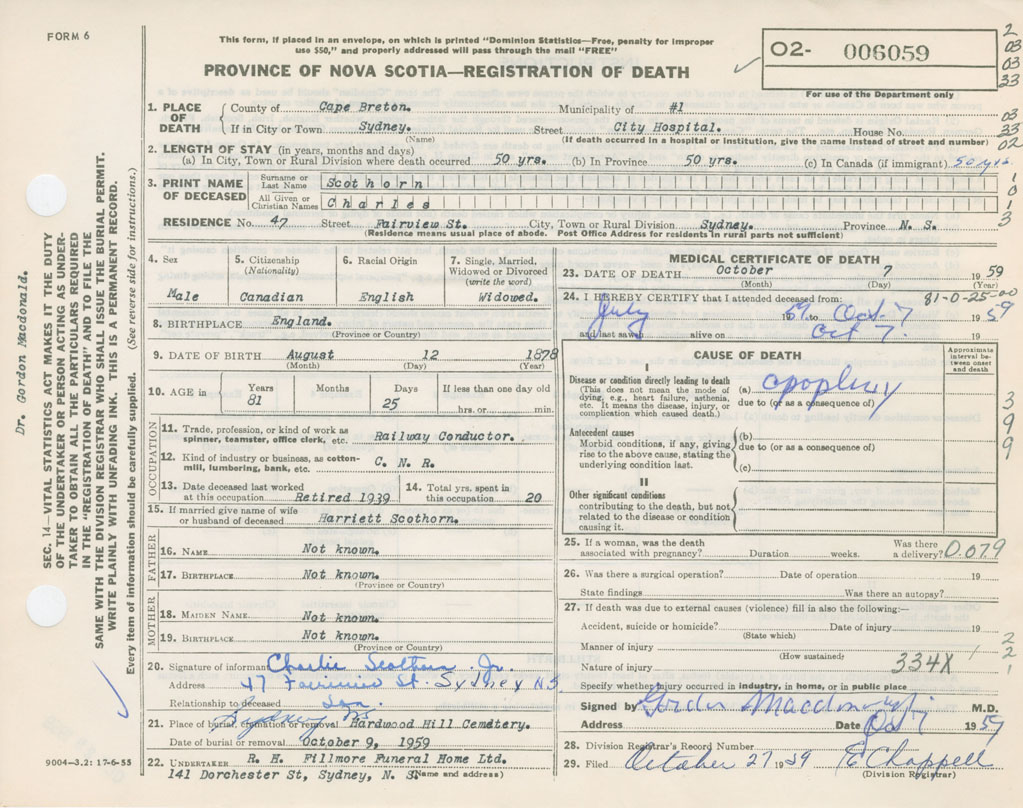 FORM 6
This form, if placed in an envelope, on which is printed "Dominion Statistics—Free, penalty for improper
use $50," and properly addressed will pass through the mail "FREE"
PROVINCE OF NOVA SCOTIA—REGISTRATION OF DEATH
02- 006059
For use of the Department only
2
03
03
33
1. PLACE OF DEATH
County of Cape Breton. Municipality of #1
If in City or Town Sydney. Street City Hospital. House No.
(Name) (If death occurred in a hospital or institution, give the name instead of street and number)
03
33
02
2. LENGTH OF STAY (in years, months and days)
(a) In City, Town or Rural Division where death occurred 50 yrs. (b) In Province 50 yrs. (c) In Canada (if immigrant) 50 yrs.
3. PRINT NAME OF DECEASED
Surname or Last Name Scothorn
All Given or Christian Names Charles
1
0
1
3
RESIDENCE No. 47 Street Fairview St. City, Town or Rural Division Sydney. Province N. S.
(Residence means usual place of abode. Post Office Address for residents in rural parts not sufficient)
4. Sex
Male
5. Citizenship
(Nationality)
Canadian
6. Racial Origin
English
7. Single, Married,
Widowed or Divorced
(write the word)
Widowed.
8. BIRTHPLACE England.
(Province or Country)
9. DATE OF BIRTH August 12 1878
(Month) (Day) (Year)
10. AGE in Years Months Days If less than one day old
81 25 hrs. or min.
OCCUPATION
11. Trade, profession, or kind of work as
spinner, teamster, office clerk, etc. Railway Conductor.
12. Kind of industry or business, as cotton-
mill, lumbering, bank, etc. C. N. R.
13. Date deceased last worked
at this occupation Retired 1939
14. Total yrs. spent in
this occupation 20
15. If married give name of wife
or husband of deceased Harriett Scothorn.
FATHER
16. NAME Not known.
17. BIRTHPLACE Not known.
(Province or Country)
MOTHER
18. MAIDEN NAME Not known.
19. BIRTHPLACE Not known.
(Province or Country)
20. Signature of informant Charlie Scothorn Jr.
Address 47 Fairview St. Sydney NS
Relationship to deceased Son
Sydney NS
21. Place of burial, cremation or removal Hardwood Hill Cemetery.
Date of burial or removal October 9, 1959
22. UNDERTAKER R. H. Fillmore Funeral Home Ltd.
141 Dorchester St, Sydney, N. S. (Name and address)
MEDICAL CERTIFICATE OF DEATH
23. DATE OF DEATH October 7 1959
(Month) (Day) (Year)
81-0-25-00
24. I HEREBY CERTIFY that I attended deceased from:
July 1959 to Oct 7 1959
and last saw alive on Oct 7. 19
CAUSE OF DEATH
Approximate
interval be-
tween onset
and death
I
Disease or condition directly leading to death
(This does not mean the mode of
dying, e.g., heart failure, asthenia,
etc. It means the disease, injury, or
complication which caused death.)
(a) apoplexy
due to (or as a consequence of)
Antecedent causes
Morbid conditions, if any, giving
rise to the above cause, stating the
underlying condition last.
(b)
due to (or as a consequence of)
(c)
II
Other significant conditions
contributing to the death, but not
related to the disease or condition
causing it.
3
9
9
25. If a woman, was the death
associated with pregnancy? Duration weeks. Was there
a delivery? 0.079
26. Was there a surgical operation? Date of operation 19
State findings Was there an autopsy?
27. If death was due to external causes (violence) fill in also the following:—
Accident, suicide or homicide? Date of injury 19
(State which)
Manner of injury
(How sustained)
Nature of injury 334X
2
2
1
Specify whether injury occurred in industry, in home, or in public place
Signed by Gordon Macdonald M.D.
Address Date Oct 7 1959
28. Division Registrar's Record Number
29. Filed October 27 1959 E Chappell
(Division Registrar)
Dr. Gordon Macdonald.
SEC. 14—VITAL STATISTICS ACT MAKES IT THE DUTY
OF THE UNDERTAKER OR PERSON ACTING AS UNDER-
TAKER TO OBTAIN ALL THE PARTICULARS REQUIRED
IN THE "REGISTRATION OF DEATH" AND TO FILE THE
SAME WITH THE DIVISION REGISTRAR WHO SHALL ISSUE THE BURIAL PERMIT.
WRITE PLAINLY WITH UNFADING INK. THIS IS A PERMANENT RECORD.
Every item of information should be carefully supplied. (See reverse side for instructions.)
9004—3.2: 17-6-55